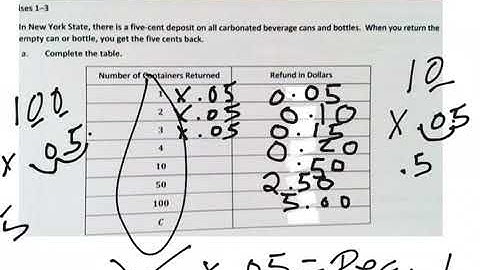 ises 1–3
In New York State, there is a five-cent deposit on all carbonated beverage cans and bottles. When you return the
empty can or bottle, you get the five cents back.
a. Complete the table.
Number of Containers Returned Refund in Dollars
1 x .05 0.05
2 x .05 0.10
3 x .05 0.15
4 0.20
10 .50
50 2.50
100 5.00
C
100
x .05.
10
x .05
.5
x .05 =